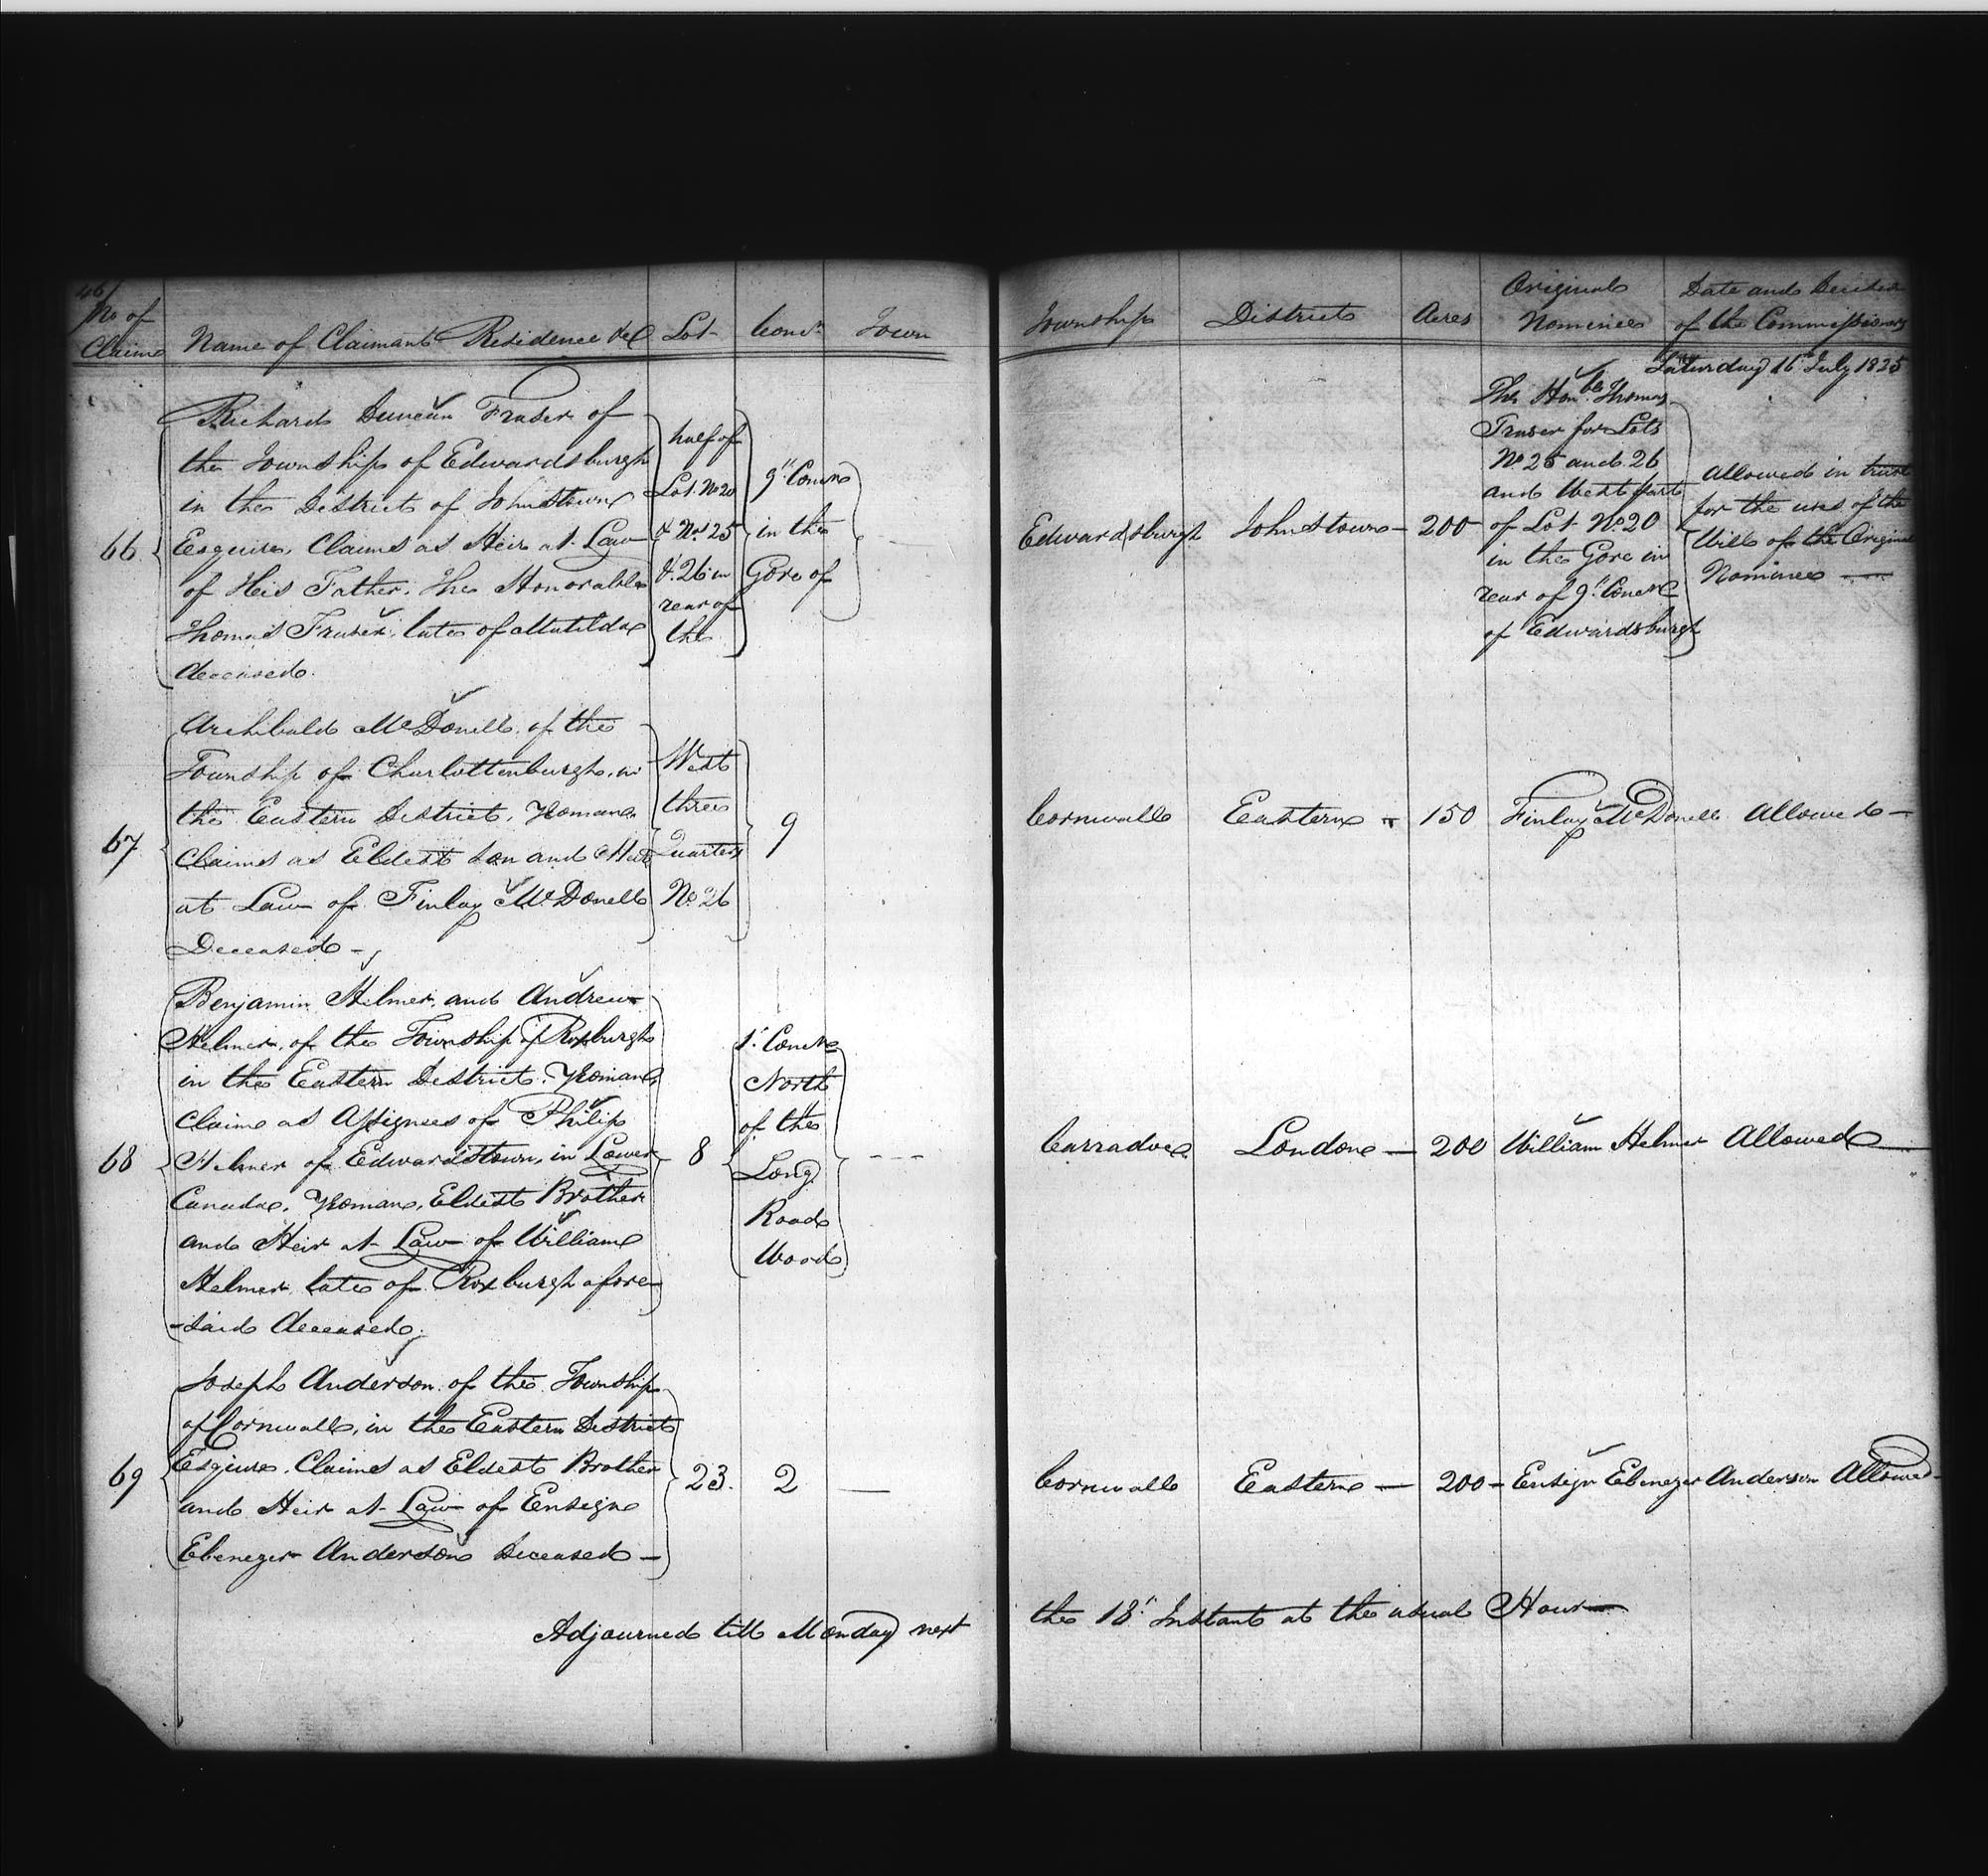 46
No of
Claim
Name of Claimant Residence &c
Lot
Conc.n
Town
Township
District
Acres
Original
Nominee
Date and Decision
of the Commissioners
Saturday 16th July 1825
66
Richard Duncan Fraser of
the Township of Edwardsburgh
in the District of Johnstown
Esquire, Claims as Heir at Law
of His Father, The Honorable
Thomas Fraser, late of Matilda
deceased.
half of
Lot No 20
& No 25
& 26 in
rear of
the
9th Conc.n
in the
Gore of
Edwardsburgh
Johnstown —
200
The Hon.ble Thomas
Fraser for Lots
No 25 and 26
and West part
of Lot No 20
in the Gore in
rear of 9th Conc.n
of Edwardsburgh
Allowed in trust
for the uses of the
Will of the Original
Nominee —
67
Archibald McDonell of the
Township of Charlottenburgh, in
the Eastern District, Yeoman,
Claims as Eldest Son and Heir
at Law of Finlay McDonell
Deceased —
West
three
Quarters
No 26
9
Cornwall
Eastern
150
Finlay McDonell
Allowed —
68
Benjamin Helmer, and Andrew
Helmer, of the Township of Roxburgh
in the Eastern District, Yeoman,
Claim as Assignees of Philip
Helmer of Edwardstown, in Lower
Canada, Yeoman, Eldest Brother
and Heir at Law of William
Helmer late of Roxburgh afore-
-said deceased,
8
1st Conc.n
North
of the
Long
Road
Wood
- - -
Carradoc
London —
200
William Helmer
Allowed —
69
Joseph Anderson of the Township
of Cornwall, in the Eastern District
Esquire, Claims as Eldest Brother
and Heir at Law of Ensign
Ebenezer Anderson Deceased —
23.
2
—
Cornwall
Eastern —
200 -
Ensign Ebenezer Anderson
Allowed -
Adjourned till Monday next the 18th Instant at the usual Hour —